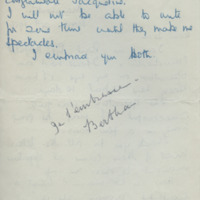 Jacqueline.
I will not be able to write
for some time until they make me
spectacles.
I embrace you Both.
Je t'embrasse.
Bertha